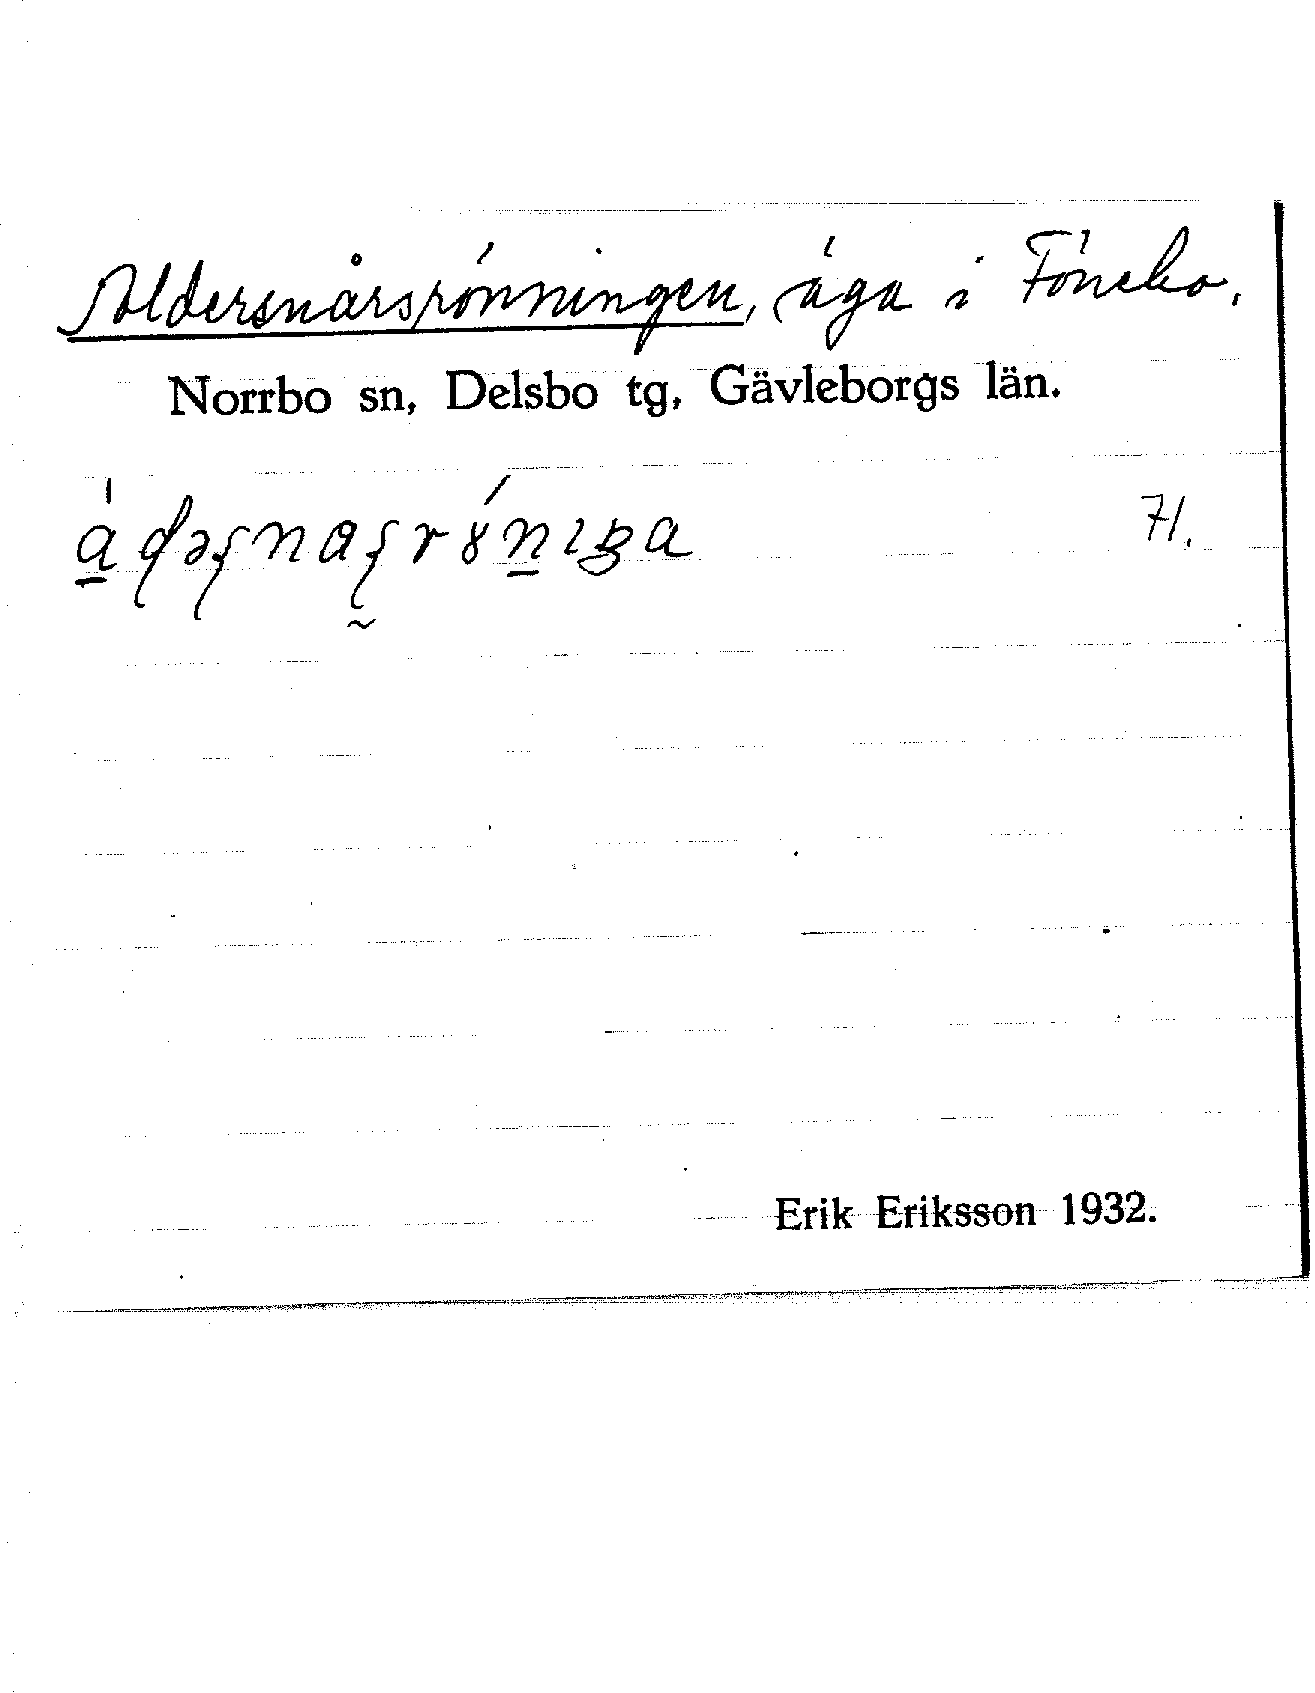 Aldersnårsrönningen, äga i Fönebo.
Norrbo sn, Delsbo tg, Gävleborgs län.
71.
Erik Eriksson 1932.